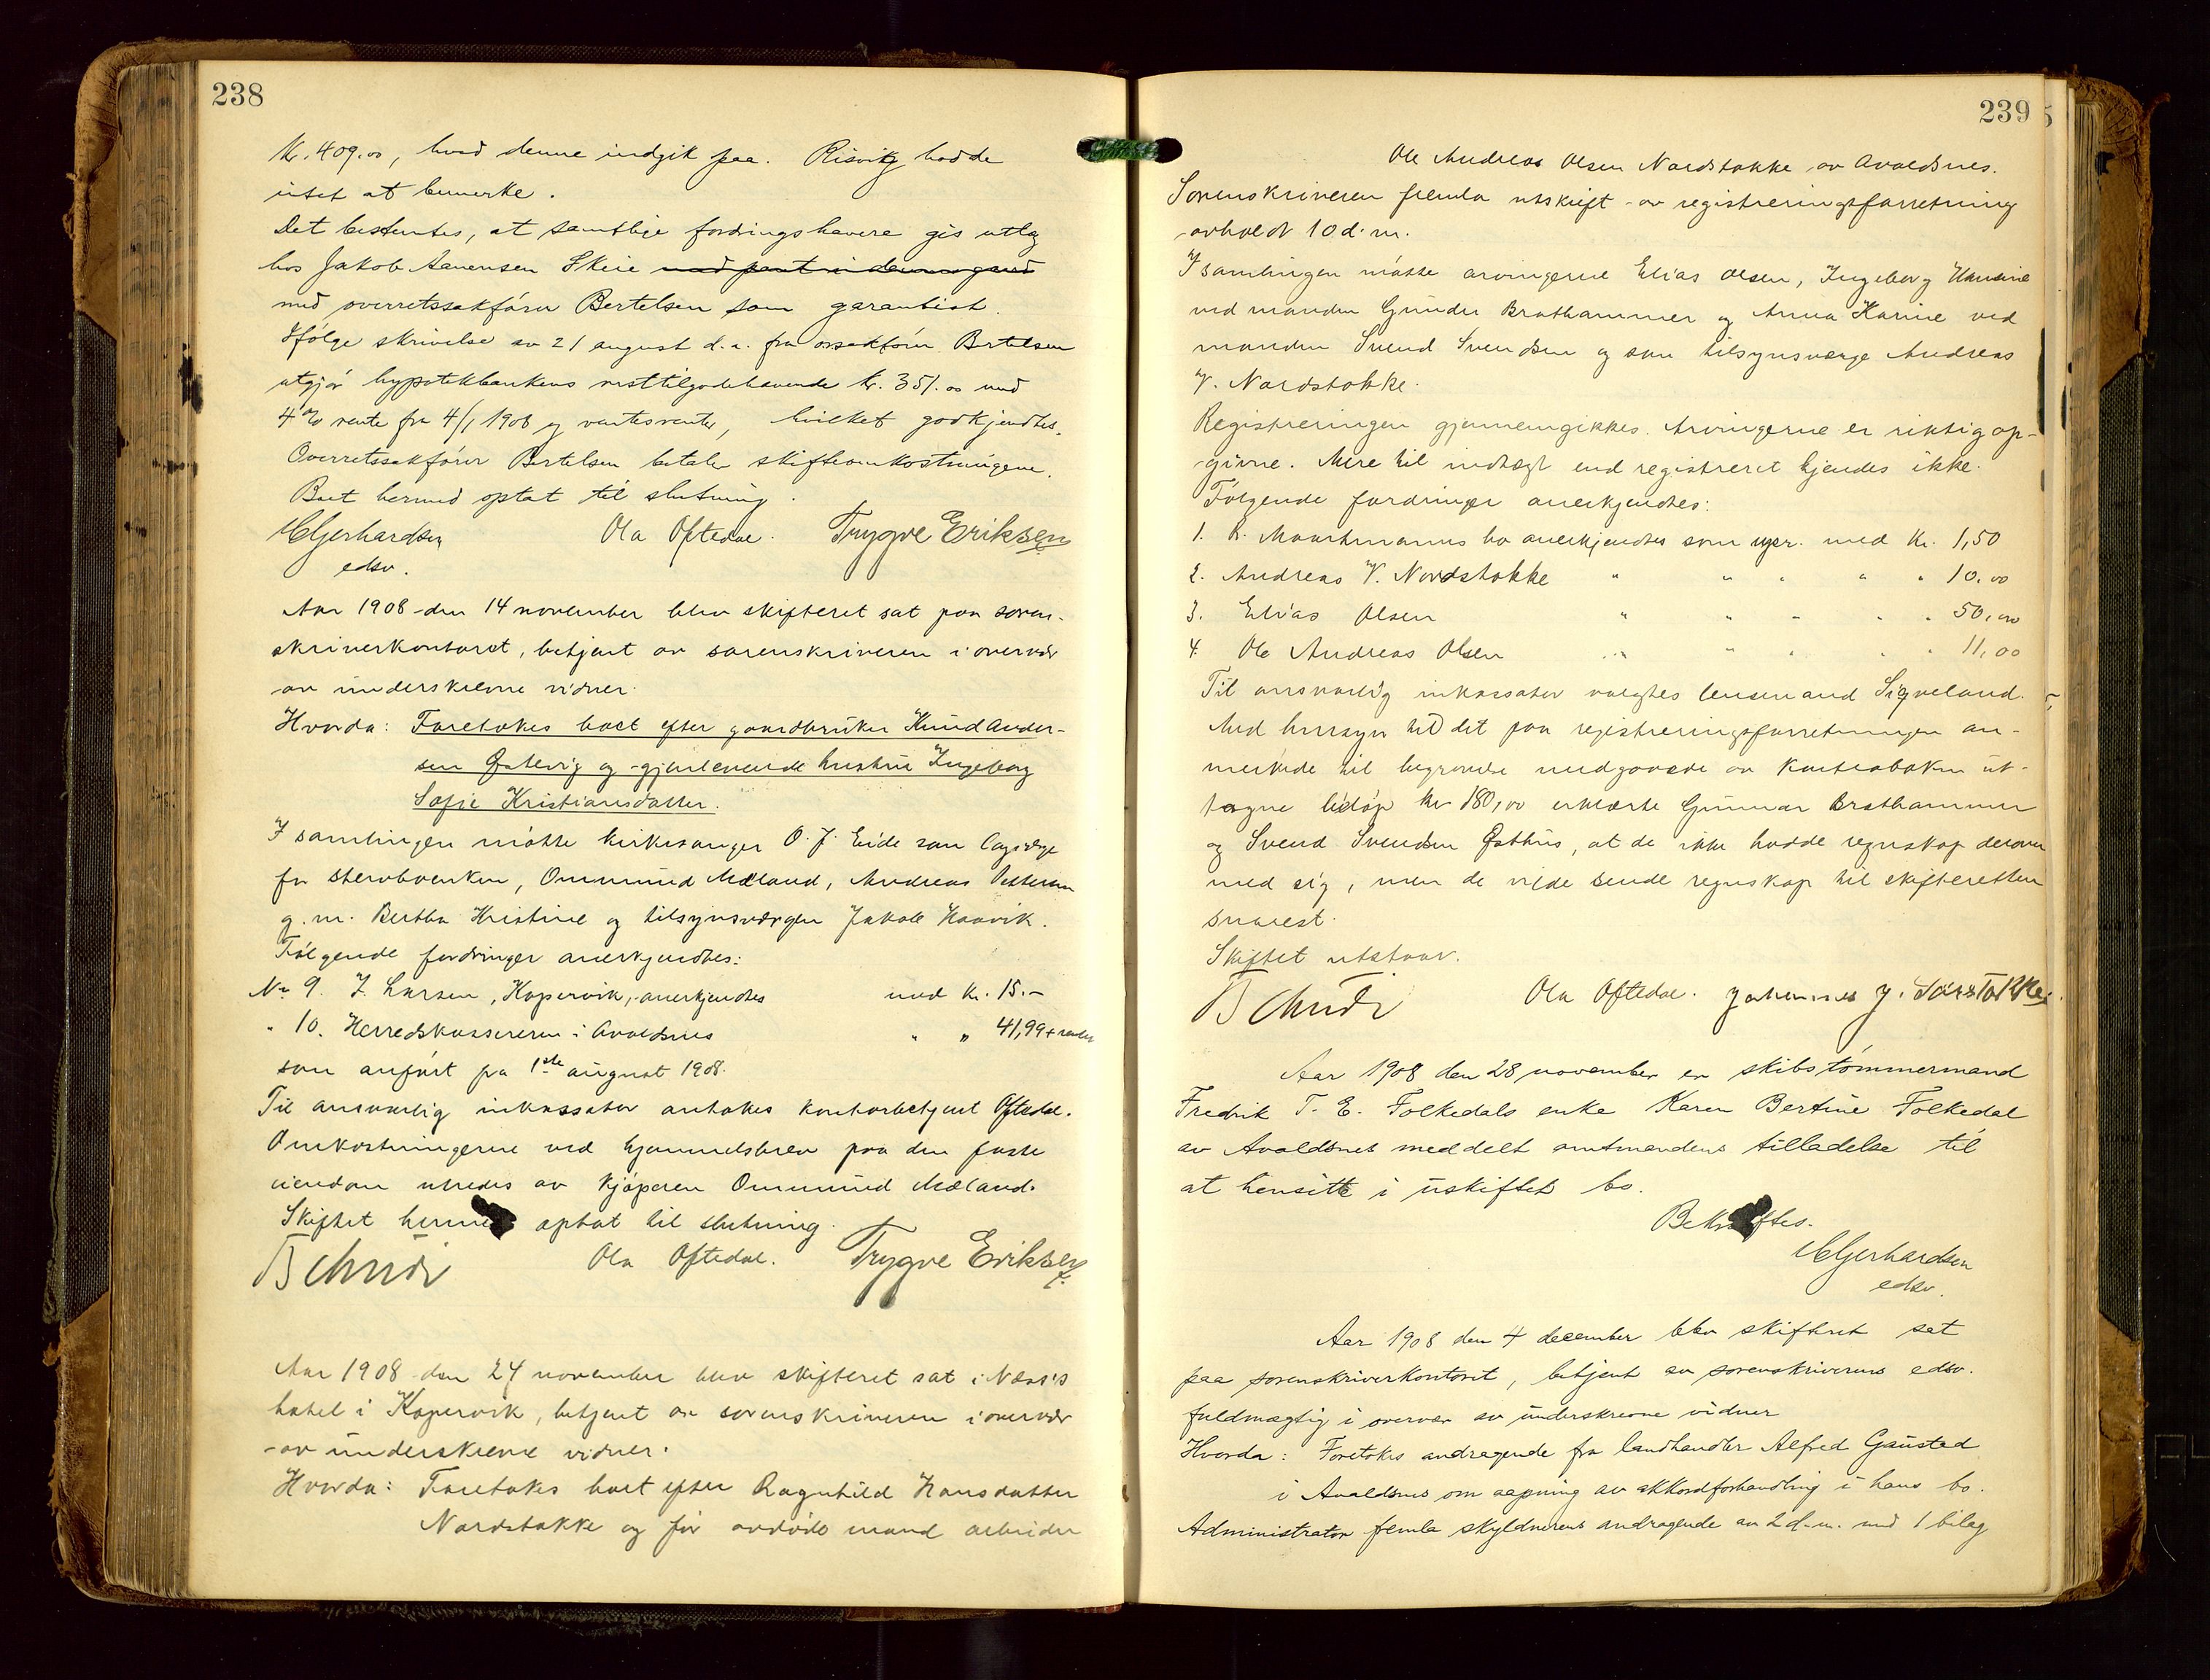 238
Kr. 409.00, hvad denne indgik paa. Risvig hadde
intet at bemerke.
Det bestemtes, at samtlige fordringshavere gis utlæg
hos Jakob Aanensen Skeie
med overretssakfører Bertelsen som garantist.
Ifølge skrivelse av 21 august d. a. fra orsakfører Bertelsen
utgjør hypotekbankens resttilgodehavende kr. 351.00 med
4% rente fra 4/1 1908 og rentesrenter, hvilket godkjendtes.
Overretssakfører Bertelsen betaler skifteomkostningene.
Boet hermed optat til slutning.
Gjerhardsen Ola Oftedal. Trygve Eriksen
edsv.
Aar 1908 den 14 november blev skifteret sat paa soren-
skriverkontoret, betjent av sorenskriveren i overvær
av underskrevne vidner.
Hvorda: Foretokes boet efter gaardbruker Knud Ander-
sen Østevig og gjenlevende hustru Ingeborg
Sofie Kristiansdatter.
I samlingen møtte kirkesanger O. J. Eide som lagverge
for stervboenken, Ommund Mæland, Andreas Pettersen
g. m. Bertha Kristine og tilsynsvergen Jakob Haavik.
Følgende fordringer anerkjendtes:
No 9. J. Larsen, Kopervik, anerkjendtes med kr. 15.-
" 10. Herredskassereren i Avaldsnes " " 41,99 + renter
som anført pa 1ste august 1908.
Til ansvarlig inkassator antokes kontorbetjent Oftedal.
Omkostningerne ved hjemmelsbrev paa den faste
eiendom utredes av kjøperen Ommund Mæland.
Skiftet hermed optat til slutning.
Schiødt Ola Oftedal. Trygve Eriksen
Aar 1908 den 24 november blev skifteret sat i Næss's
hotel i Kopervik, betjent av sorenskriveren i overvær
av underskrevne vidner.
Hvorda: Foretokes boet efter Ragnhild Hansdatter
Nordstokke og før avdøde mand arbeider
239
Ole Andreas Olsen Nordstokke av Avaldsnes.
Sorenskriveren fremla utskrift av registreringsforretning
avholdt 10 d. m.
I samlingen møtte arvingerne Elias Olsen, Ingeborg Hansine
ved manden Gunder Brathammer og Anna Karine ved
manden Svend Svendsen og som tilsynsverge Andreas
V. Nordstokke.
Registreringen gjennemgikkes. Arvingerne er riktig op-
givne. Mere til indtægt end registreret kjendes ikke.
Følgende fordringer anerkjendtes:
1. R. bo anerkjendtes som upr. med kr. 1,50
2. Andreas V. Nordstokke " " " " " 10,00
3. Elias Olsen " " " " " 50,00
4. Ole Andreas Olsen " " " " " 11,00
Til ansvarlig inkassator valgtes lensmand Sigveland.
Med hensyn til det paa registreringsforretningen an-
merkede til begravelse medgaaede av kontraboken ut-
tagne beløp kr 180,00 erklærte Gunnar Brathammer
og Svend Svendsen Østhus, at de ikke hadde regnskap derover
med sig, men de vilde sende regnskap til skifteretten
snarest.
Skiftet utstaar.
Schiødt Ola Oftedal. Johannes J. Sørstokke.
Aar 1908 den 28 november er skibstømmermand
Fredrik T. E. Folkedals enke Karen Bertine Folkedal
av Avaldsnes meddelt amtmandens tilladelse til
at hensitte i uskiftet bo.
Bekræftes.
Gjerhardsen
edsv.
Aar 1908 den 4 december blev skifteret sat
paa sorenskriverkontoret, betjent av sorenskriverens edsv.
fuldmægtig i overvær av underskrevne vidner
Hvorda: Foretokes andragende fra landhandler Alfred Gaustad
i Avaldsnes om aapning av akkordforhandling i hans bo.
Administrator fremla skyldnerens andragende av 2 d. m. med 1 bilag